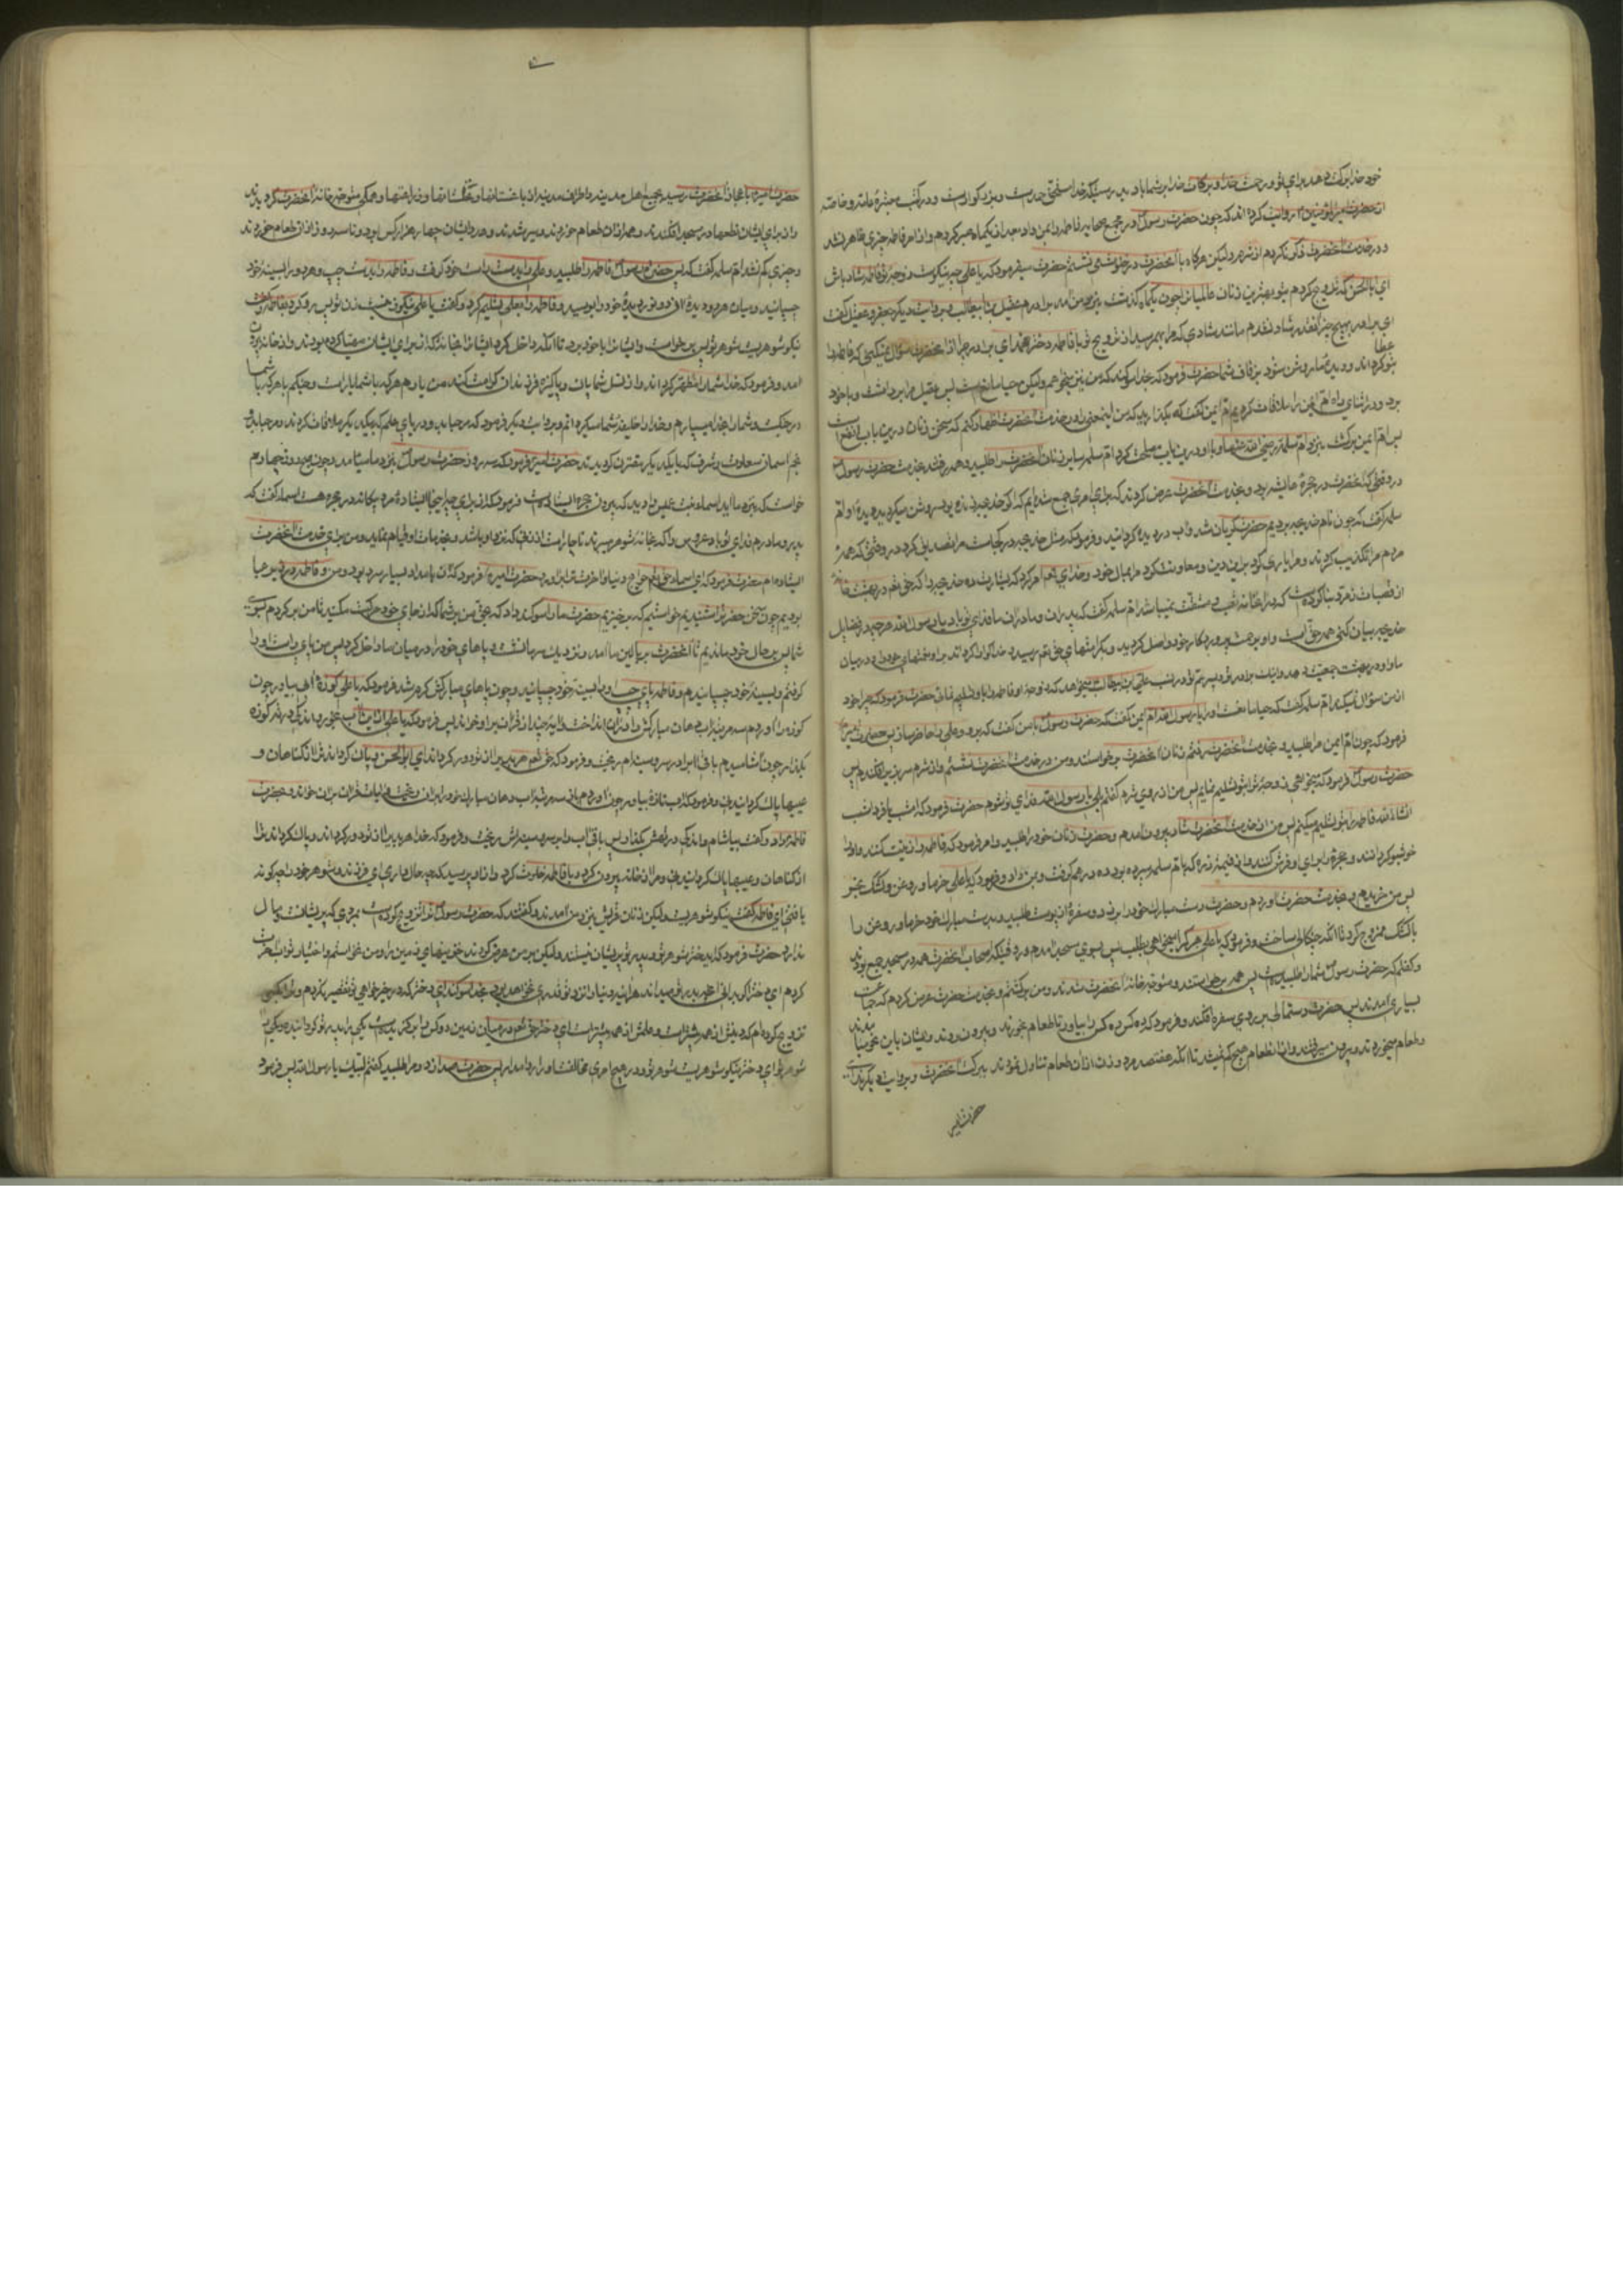 خود خدا برکت دهد برای تو و رحمت خدا و برکات خدا بر شما باد بدرستیکه خدا مستحق حمدست و بزرگوارست و در کتب معتبرهٔ عامه و خاصه
از حضرت امیر المؤمنین روایت کرده اند که چون حضرت رسول در مجمع صحابه فاطمه را بمن داد بعد از آن یکماه صبر کردم و از امر فاطمه چیزی ظاهر نشد
و در خدمت آنحضرت ذکر نکردم از شرم ولیکن هرگاه با آنحضرت در خلوت می نشستم حضرت میفرمود که یا علی چه نیکوست زوجهٔ تو فاطمه شاد باش
ای ابا الحسن که تزویج کردم بتو بهترین زنان عالمیان را چون یکماه گذشت بنزد من آمد برادرم عقیل بن ابیطالب و بروایت دیگر جعفر و عقیل گفت
ای برادر بهیچ چیز آنقدر شاد نشدم مانند شادی که مرا بهم رسید از تزویج تو با فاطمه دختر محمد ای برادر چرا از آنحضرت سؤال نمیکنی که فاطمه را
بتو دهد و دیدهٔ ما روشن شود بزفاف شما حضرت فرمود که بخدا سوگند که من نیز میخواهم ولیکن حیا مانعست پس عقیل مرا برداشت و با خود
برد و در اثنای راه ام ایمن را ملاقات کردیم ام ایمن گفت که بگذارید که من اینمعنی را در خدمت آنحضرت اظهار کنم که سخن زنان درین باب
پس ام ایمن برگشت بنزد ام سلمه رضی الله عنها و با او درین باب مصلحت کرد ام سلمه سایر زنان آنحضرت را طلبید و همه رفتند بخدمت حضرت رسول
در وقتی که آنحضرت در حجرهٔ عایشه بود و بخدمت آنحضرت عرض کردند که برای امری جمع شده ایم که اگر خدیجه زنده بود روشن میگردید دیدهٔ او ام
سلمه گفت که چون نام خدیجه بردیم حضرت گریان شد و آب در دیده گردانید و فرمود که مثل خدیجه در کجاست مرا تصدیق کرد در وقتی که همهٔ
مردم مرا تکذیب کردند و مرا یاری کرد بر دین و معاونت کرد مرا بمال خود و خدای امر کرد که بشارت دهم خدیجه را که حق تعالی در بهشت خانه
از قصبات زمرد بنا کرده است که در آنخانه تعب و مشقت نمیباشد ام سلمه گفت که پدران و مادران ما فدای تو باد یا رسول الله هر چه در فضایل
خدیجه بیان کنی همه حق است و او برحمت پروردگار خود واصل گردید و بکرامتهای حق تعالی رسید خدا گوارا گرداند بر او نعمتهای خود را و در میان
ما و او در بهشت جمعیت دهد و اینک برادر تو و پسر عم تو در نسب علی بن ابیطالب میخواهد که زوجهٔ او فاطمه را باو تسلیم نمائی حضرت فرمود که چرا خود
از من سؤال نمیکند ام سلمه گفت که حیا مانعست او را یا رسول الله ام ایمن گفت که حضرت رسول با من گفت که برو و علی را حاضر ساز پس حضرت امیر
فرمود که چون ام ایمن مرا طلبید و بخدمت آنحضرت رفتم زنان آنحضرت برخواستند و من در خدمت آنحضرت نشستم و از شرم سر بزیر افکندم پس
حضرت رسول فرمود که میخواهی زوجهٔ ترا بتو تسلیم نمایم پس من از روی شرم گفتم بلی یا رسول الله فدای تو شوم حضرت فرمود که امشب یا فردا شب
انشاء الله فاطمه را بتو تسلیم میکنم پس من از خدمت آنحضرت شاد بیرون آمدم و حضرت زنان خود را طلبید و امر فرمود که فاطمه را زینت کنند و او را
خوشبو گردانند و حجرهٔ را برای او فرش کنند و از قیمت زره که بام سلمه سپرده بود ده درهم گرفت و بمن داد و فرمود که یا علی خرما و روغن و کشک بخر
پس من خریدم و بخدمت حضرت آوردم و حضرت دست مبارک خود را برزد و سفرهٔ از پوست طلبید و بدست مبارک خود خرما و روغن را
با کشک ممزوج کرد تا آنکه چنگالی ساخت و فرمود که یا علی هر کرا میخواهی بطلب پس بسوی مسجد آمدم در وقتیکه اصحاب آنحضرت همه در مسجد جمع بودند
و گفتم که حضرت رسول شما را طلبیده است پس همه برخواستند و متوجه خانهٔ آنحضرت شدند و من برگشتم و بخدمت حضرت عرض کردم که جماعت
بسیاری آمدند پس حضرت دستمالی بر روی سفره افکند و فرمود که ده کس ده کس را بیاور تا طعام بخورند و بیرون روند و ایشان باین نحو میآمدند
و طعام میخوردند و بیرون میرفتند و از آن طعام هیچ کم نمیشد تا آنکه هفتصد مرد و زن از آن طعام تناول نمودند ببرکت آنحضرت و بروایت دیگر
حضرت امیر
حضرت امیر باعجاز آنحضرت رسید بجمیع اهل مدینه و اطراف مدینه از باغستانها و نخلستانها و زراعتها و همگی متوجه خانهٔ آنحضرت گردیدند
و از برای ایشان نطعها در مسجد افکندند و همه از آن طعام خوردند و سیر شدند و عدد ایشان چهار هزار کس بود و تا سه روز از آن طعام خوردند
و چیزی کم نشد ام سلمه گفت که پس حضرت رسول فاطمه را طلبید و علی را بدست راست خود گرفت و فاطمه را بدست چپ و هر دو را بسینهٔ خود
چسپانید و میان هر دو دیدهٔ آن دو نور دیدهٔ خود را بوسید و فاطمه را بعلی تسلیم کرد و گفت یا علی نیکو زنیست زن تو پس رو کرد بفاطمه و گفت
نیکو شوهریست شوهر تو پس برخواست و ایشان را با خود برد تا آنکه داخل کرد ایشان را بخانهٔ که از برای ایشان مهیا کرده بودند و از خانه بیرون
آمد و فرمود که خدا شما را مطهر گردانند و از نسل شما پاک و پاکیزه فرزندان کرامت کند من یاورم هر که با شما یار است و جنگم با هر که با شما
در جنگست و شما را بخدا میسپارم و خدا را خلیفهٔ شما میگردانم و بروایت دیگر فرمود که مرحبا بدو دریای علم که بیکدیگر ملاقات کردند و مرحبا بدو
نجم آسمان سعادت و شرف که با یکدیگر مقترن گردیدند حضرت امیر فرمود که سه روز حضرت رسول بنزد ما نیامد و چون صبح روز چهارم
خواست که بنزد ما آید اسماء بنت عمیس را دید که بیرون حجره ایستاده است فرمود که از برای چه اینجا ایستادهٔ مرد بیگانه در حجره هست اسماء گفت که
پدر و مادرم فدای تو باد عروس را که بخانهٔ شوهر میبرند ناچار است از زنی که نزد او باشد و بخدمات او قیام نماید و من برای خدمت آنحضرت
ایستاده ام حضرت فرمود که ای اسماء حق تعالی حوائج دنیا و آخرت ترا برآورد حضرت امیر فرمود که آن بامداد بسیار سرد بود و من و فاطمه در زیر عبا
بودیم چون سخن حضرت را شنیدیم خواستیم که برخیزیم حضرت ما را سوگند داد که بحق من بر شما که از جای خود حرکت مکنید تا من برگردم بسوی
شما پس بر حال خود ماندیم تا آنحضرت بر بالین ما آمد و نزدیک سر ما نشست و پاهای خود را در میان ما داخل کرد پس من پای راست او را
گرفتم و بسینهٔ خود چسپانیدم و فاطمه پای چپ او را بسینهٔ خود چسپانید و چون پاهای مبارکش گرم شد فرمود که یا علی کوزهٔ آب بیاور چون
کوزه را آوردم سه مرتبه آب دهان مبارکش را در آن انداخت و آیهٔ چند از قرآن بر او خواند پس فرمود که یا علی ازین آب بخور و اندکی در ته کوزه
بگذار چون آشامیدم باقی را بر سر و سینه ام ریخت و فرمود که حق تعالی هر بدی را از تو دور گرداند ای ابو الحسن و پاک گرداند ترا از گناهان و
عیبها پاک گردانیدنی و فرمود که آب تازه بیاور چون آوردم باز سه مرتبه آب دهان مبارک خود را در آن ریخت و آیات قرآن بر آن خواند و بحضرت
فاطمه داد و گفت بیاشام و اندکی در تهش بگذار پس باقی آب را بر سر و سینه اش ریخت و فرمود که خدا هر بدی را از تو دور گرداند و پاک گرداند ترا
از گناهان و عیبها پاک گردانیدنی و مرا از خانه بیرون کرد و با فاطمه خلوت کرد و از او پرسید که چه حال داری ای فرزند و شوهر خود را چگونه
یافتی ای فاطمه گفت نیکو شوهریست ولیکن زنان قریش بنزد من آمدند و گفتند که حضرت رسول ترا تزویج کرده است بمردی که پریشانست و مال
ندارد حضرت فرمود که ای دختر شوهر تو و پدر تو پریشان نیستند ولیکن بر من عرض کردند خزینهای زمین را و من نخواستم و اختیار ثواب آخرت
کردم ای دختر اگر بدانی آنچه پدر تو میداند هرآینه دنیا و از نزد تو قدری نخواهد بود بخدا سوگند ای دختر که در خیرخواهی تو تقصیر نکردم و ترا بکسی
تزویج کرده ام که دینش از همه پیشتر است و علمش از همه بیشتر است ای دختر حق تعالی در میان زمین دو کس را برگزیده است یکی را پدر تو گردانیده و یکی را
شوهر تو ای دختر نیکو شوهریست شوهر تو و در هیچ امری مخالفت او را روا مدار پس حضرت صدا زد و مرا طلبید گفتم لبیک یا رسول الله پس فرمود